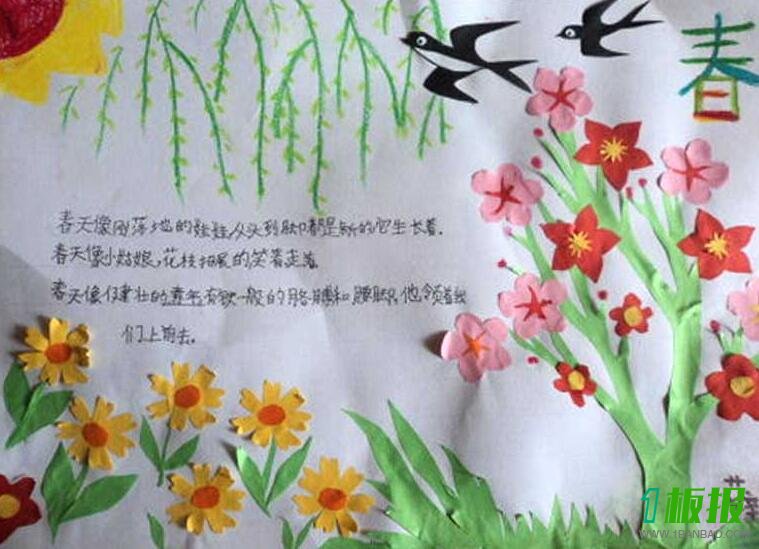 春
春天像刚落地的娃娃从头到脚都是新的它生长着.
春天像小姑娘,花枝招展的笑着走着
春天像健壮的青年有铁一般的胳膊和腰脚,他领着我
们上前去.
1板报
WWW.1BANBAO.COM